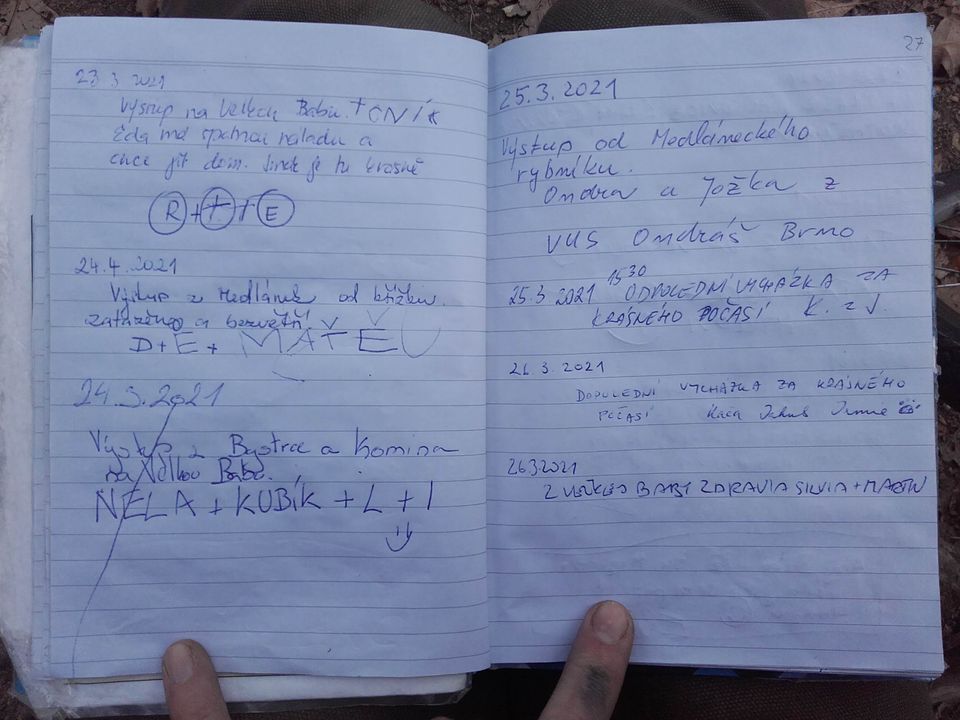 23. 3. 2021
Výstup na Velkou Babu. +
Eda má špatnou náladu a
chce jít dom. Jinak je tu krásně
R + + + E
24.4.2021
Výstup z Medlánek od křížku.
zataženo a bezvětří
D + E + MATĚJ
24.3.2021
Výstup z Bystrce a Komína
na Velkou Babu.
NELA + KUBÍK + L + I
27
25.3.2021
Výstup od Medláneckého
rybníku.
Ondra a Jožka z
VUS Ondráš Brno
25.3.2021 15 30 ODPOLEDNÍ VYCHÁZKA ZA
KRÁSNÉHO POČASÍ K. z J.
26.3.2021
DOPOLEDNÍ VYCHÁZKA ZA KRÁSNÉHO
POČASÍ Kača Jakub
26.3.2021
Z VELKEJ BABY ZDRAVIA SILVIA + MARTIN